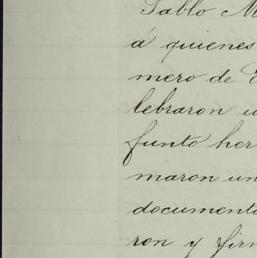 Pablo M
á quienes
mero de E
lebraron u
funto her
maron un
documento
ron y firm